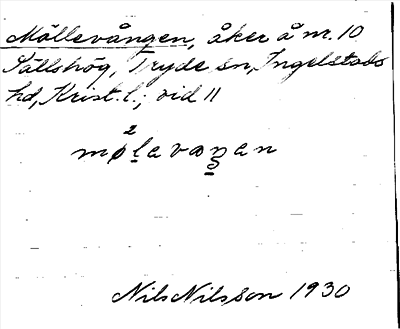 Möllevången, åker å nr. 10
Källshög, Tryde sn, Ingelstads
hd, Krist. l.; vid 11
2
møḷavaŋen
Nils Nilsson 1930